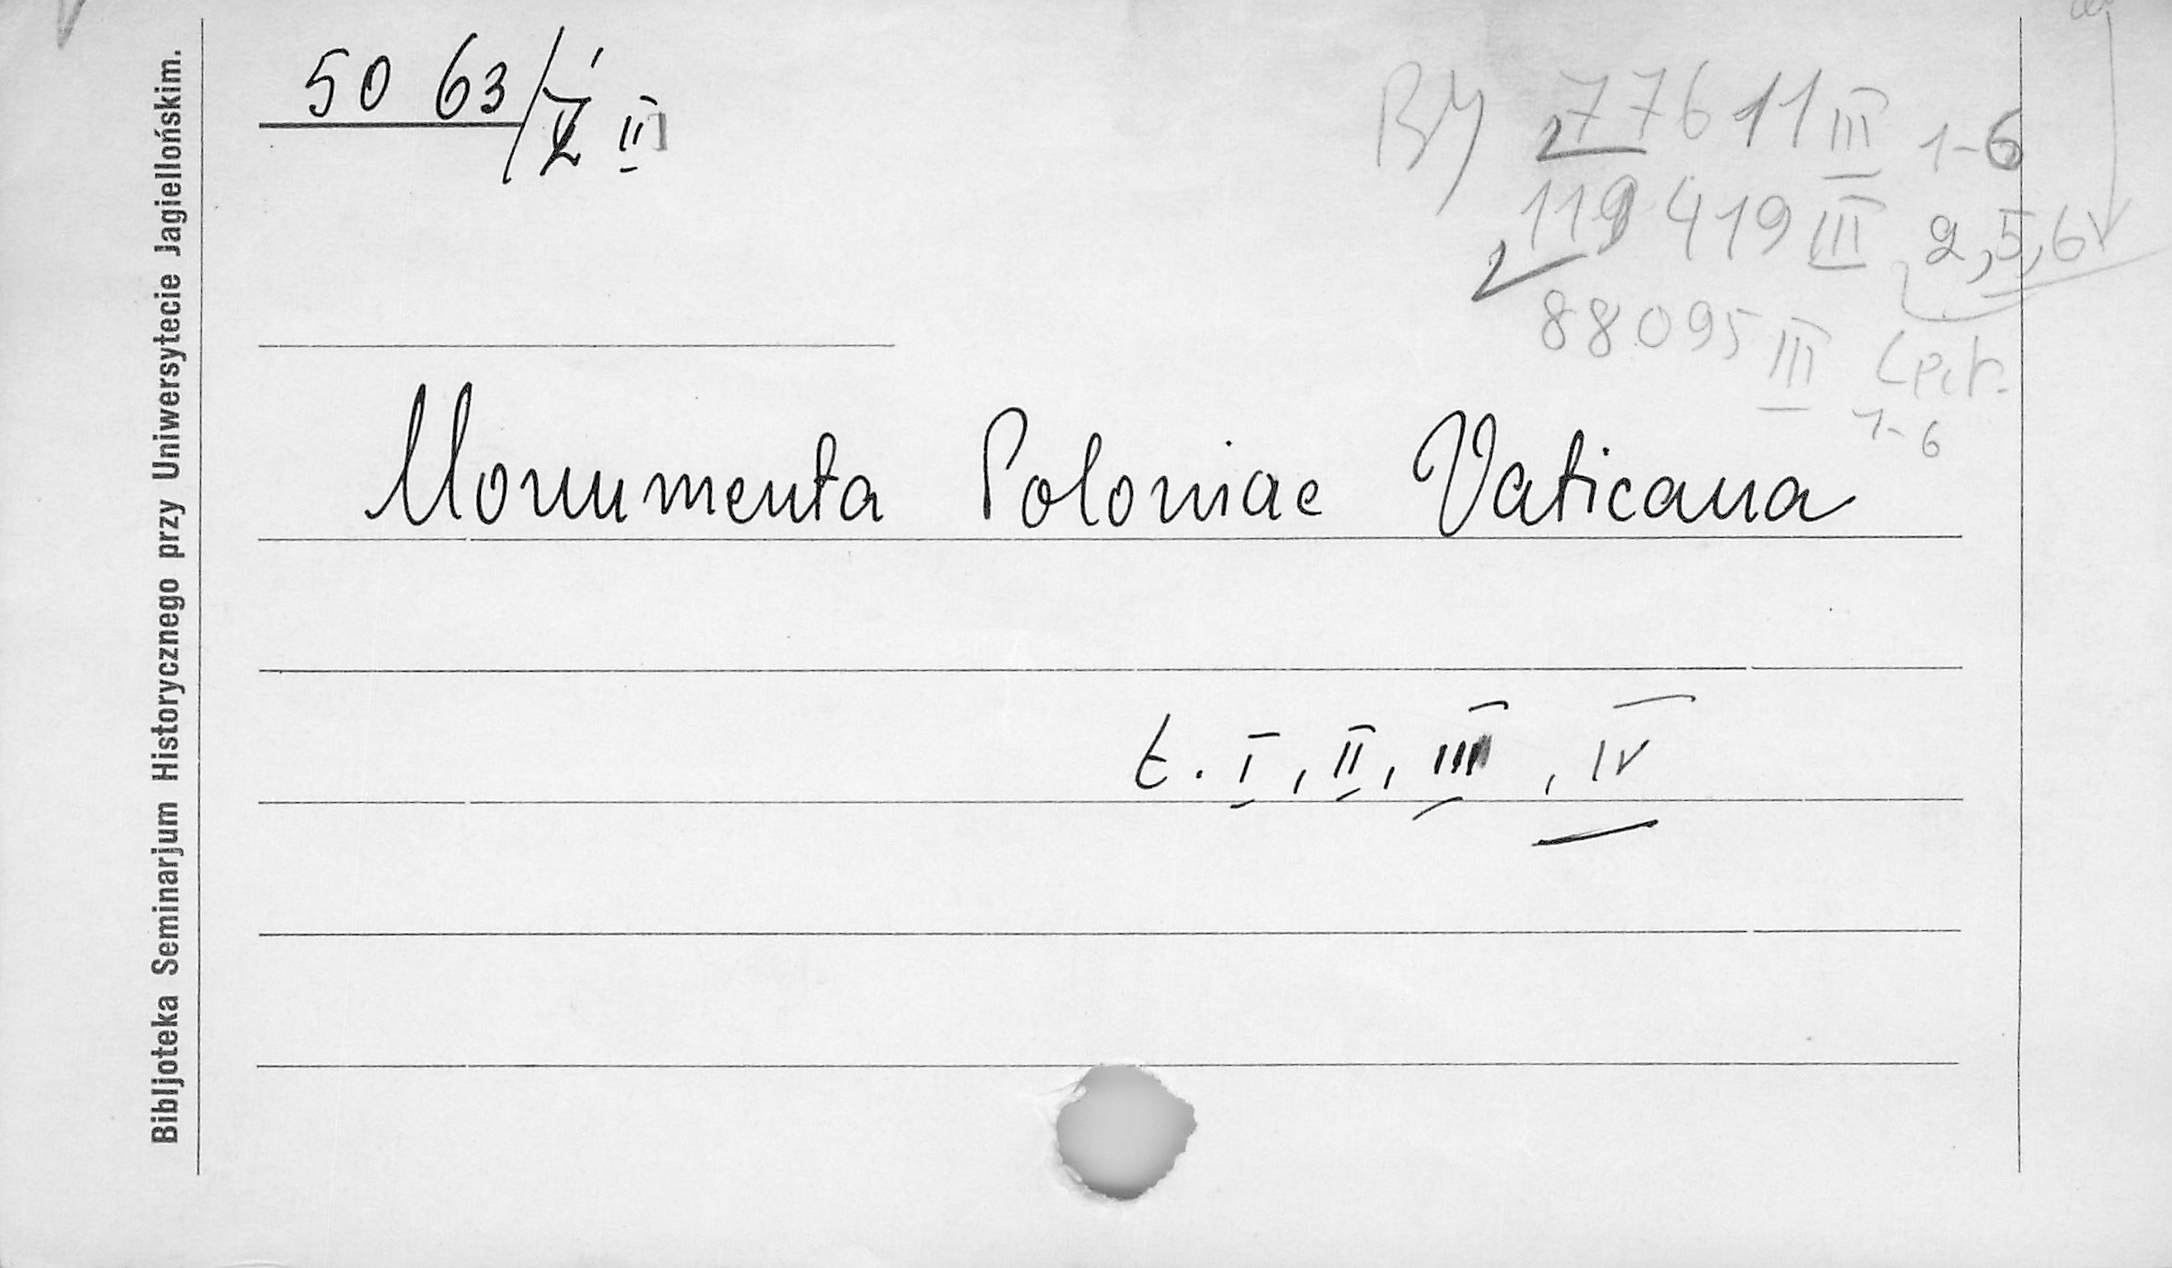 Bibljoteka Seminarjum Historycznego przy Uniwersytecie Jagiellońskim.
50 63/Ź II
BJ 77611 III 1-6
119 419 III 2,5,6
88095 III
1-6
Monumenta Poloniae Vaticana
t. I, II, III, IV